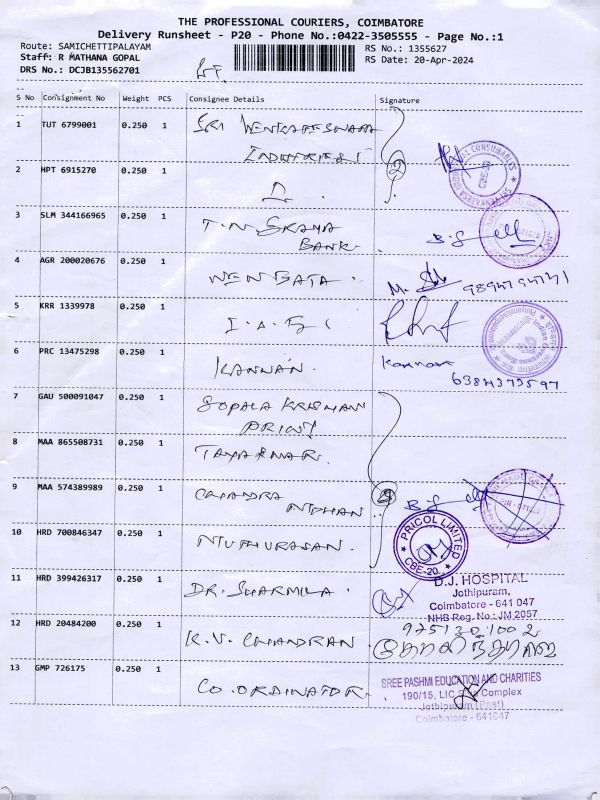 THE PROFESSIONAL COURIERS, COIMBATORE
Delivery Runsheet - P20 - Phone No.:0422-3505555 - Page No.:1
Route: SAMICHETTIPALAYAM RS No.: 1355627
Staff: R MATHANA GOPAL RS Date: 20-Apr-2024
DRS No.: DCJB135562701
S No Consignment No Weight PCS Consignee Details Signature
1 TUT 6799001 0.250 1 SRI VENKATESWARA
INDUSTRIES
2 HPT 6915270 0.250 1
3 SLM 344166965 0.250 1 T.N. GRAMA
BANK.
4 AGR 200020676 0.250 1
5 KRR 1339978 0.250 1
6 PRC 13475298 0.250 1 KANNAN. Kannan
6384373597
7 GAU 500091047 0.250 1 GOPALA KRISHNAN
8 MAA 865508731 0.250 1
9 MAA 574389989 0.250 1 CHANDRA
10 HRD 700846347 0.250 1 MUTHURASAN. PRICOL LIMITED
CBE-20
11 HRD 399426317 0.250 1 DR. SHARMILA. D.J. HOSPITAL
Jothipuram,
Coimbatore - 641 047
NHB Reg. No.: JM 2057
12 HRD 20484200 0.250 1 K.V. CHANDRAN 9751301002
13 GMP 726175 0.250 1 CO.ORDINATOR. SREE PASHMI EDUCATION AND CHARITIES
190/15, LIC Complex
Jothipuram (Post)
Coimbatore - 641047